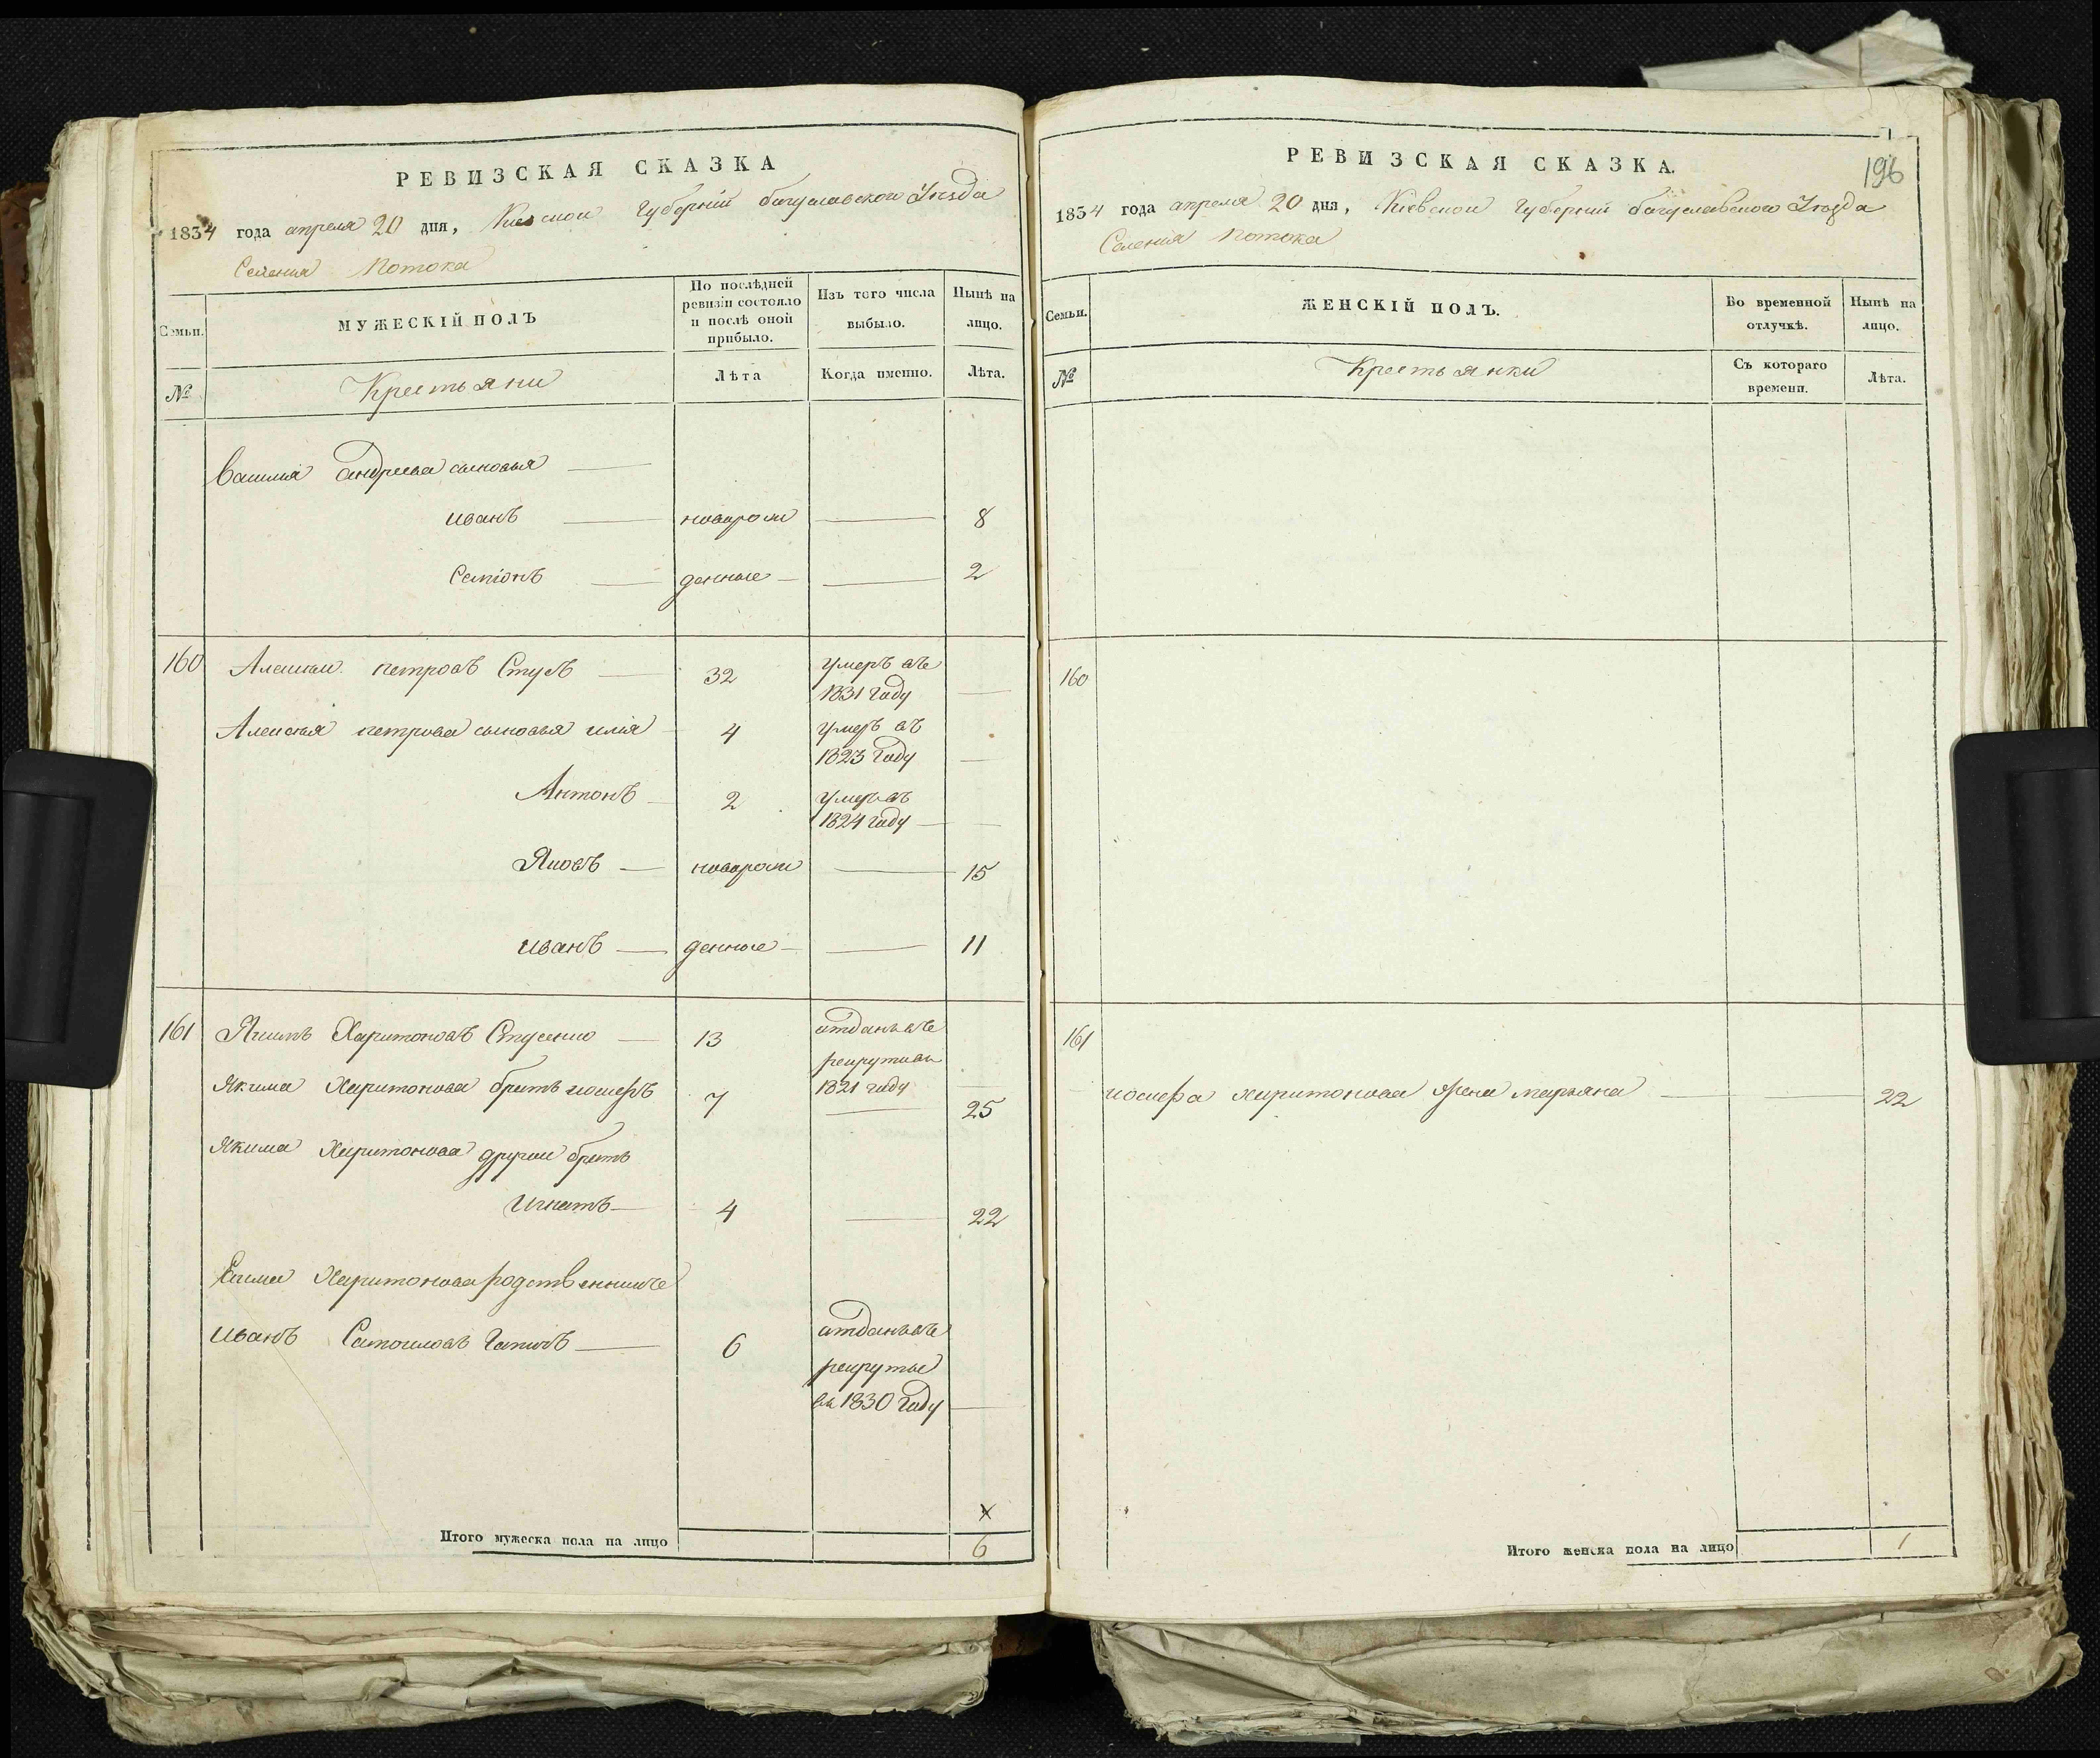 РЕВИЗСКАЯ СКАЗКА
1834 года апреля 20 дня, Киевской Губернии богуславского Уезда
Селения Потока
Семьи.
МУЖЕСКІЙ ПОЛЪ
По послѣдней ревизіи состояло и послѣ оной прибыло.
Изъ того числа выбыло.
Нынѣ на лицо.
№
Крестьяни
Лѣта
Когда именно.
Лѣта.
Василия андреева сыновья
иванъ новорож 8
Семіонъ денные 2
160 Алексѣй петровъ Стусъ 32 умеръ въ
1831 году
Алексея петрова сыновья илія 4 умеръ въ
1823 году
Антонъ 2 умеръ въ
1824 году
Яковъ новорож 15
иванъ денные 11
161 Якимъ Харитоновъ Стусенко 13 отданъ въ
рекруты въ
1821 году
Якима Харитонова братъ иосифъ 7 25
Якима Харитонова другой братъ
Игнатъ 4 22
Харитонова родственникъ
иванъ Самоиловъ 6 отданъ въ
рекруты
въ 1830 году
х
Итого мужеска пола на лицо 6
РЕВИЗСКАЯ СКАЗКА.
196
1834 года апреля 20 дня, Киевской Губернии богуславского Уезда
Селения Потока
Семьи.
ЖЕНСКІЙ ПОЛЪ.
Во временной отлучкѣ.
Нынѣ на лицо.
№
Крестьянки
Съ котораго времени.
Лѣта.
160
161
иосифа харитонова жена марьяна 22
Итого женска пола на лицо 1